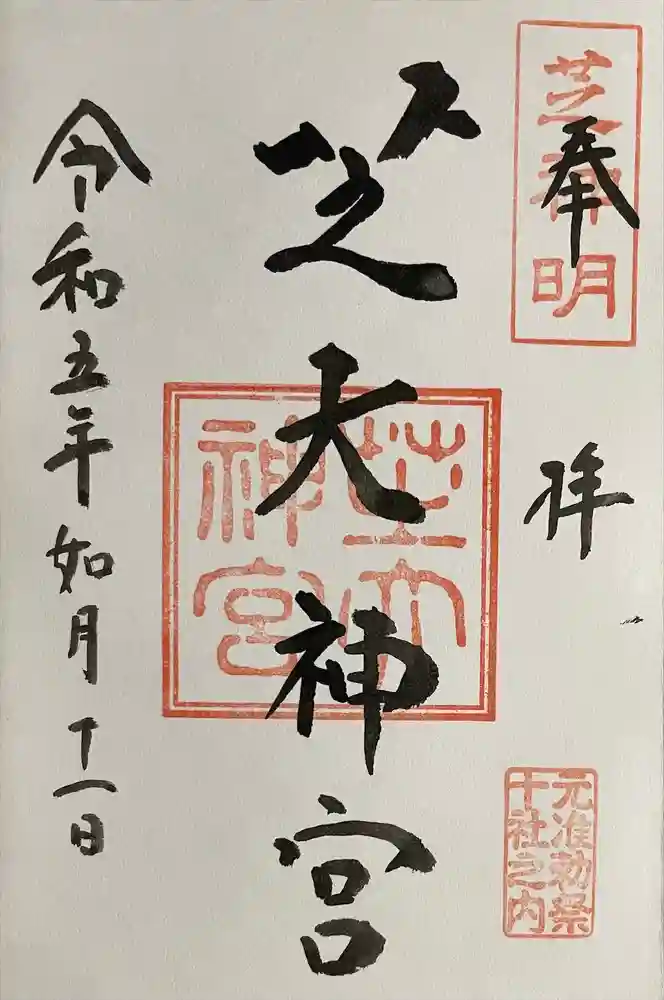 奉拝
芝神明
元准勅祭
十社之内
芝大神宮
芝大
神宮
令和五年如月十一日